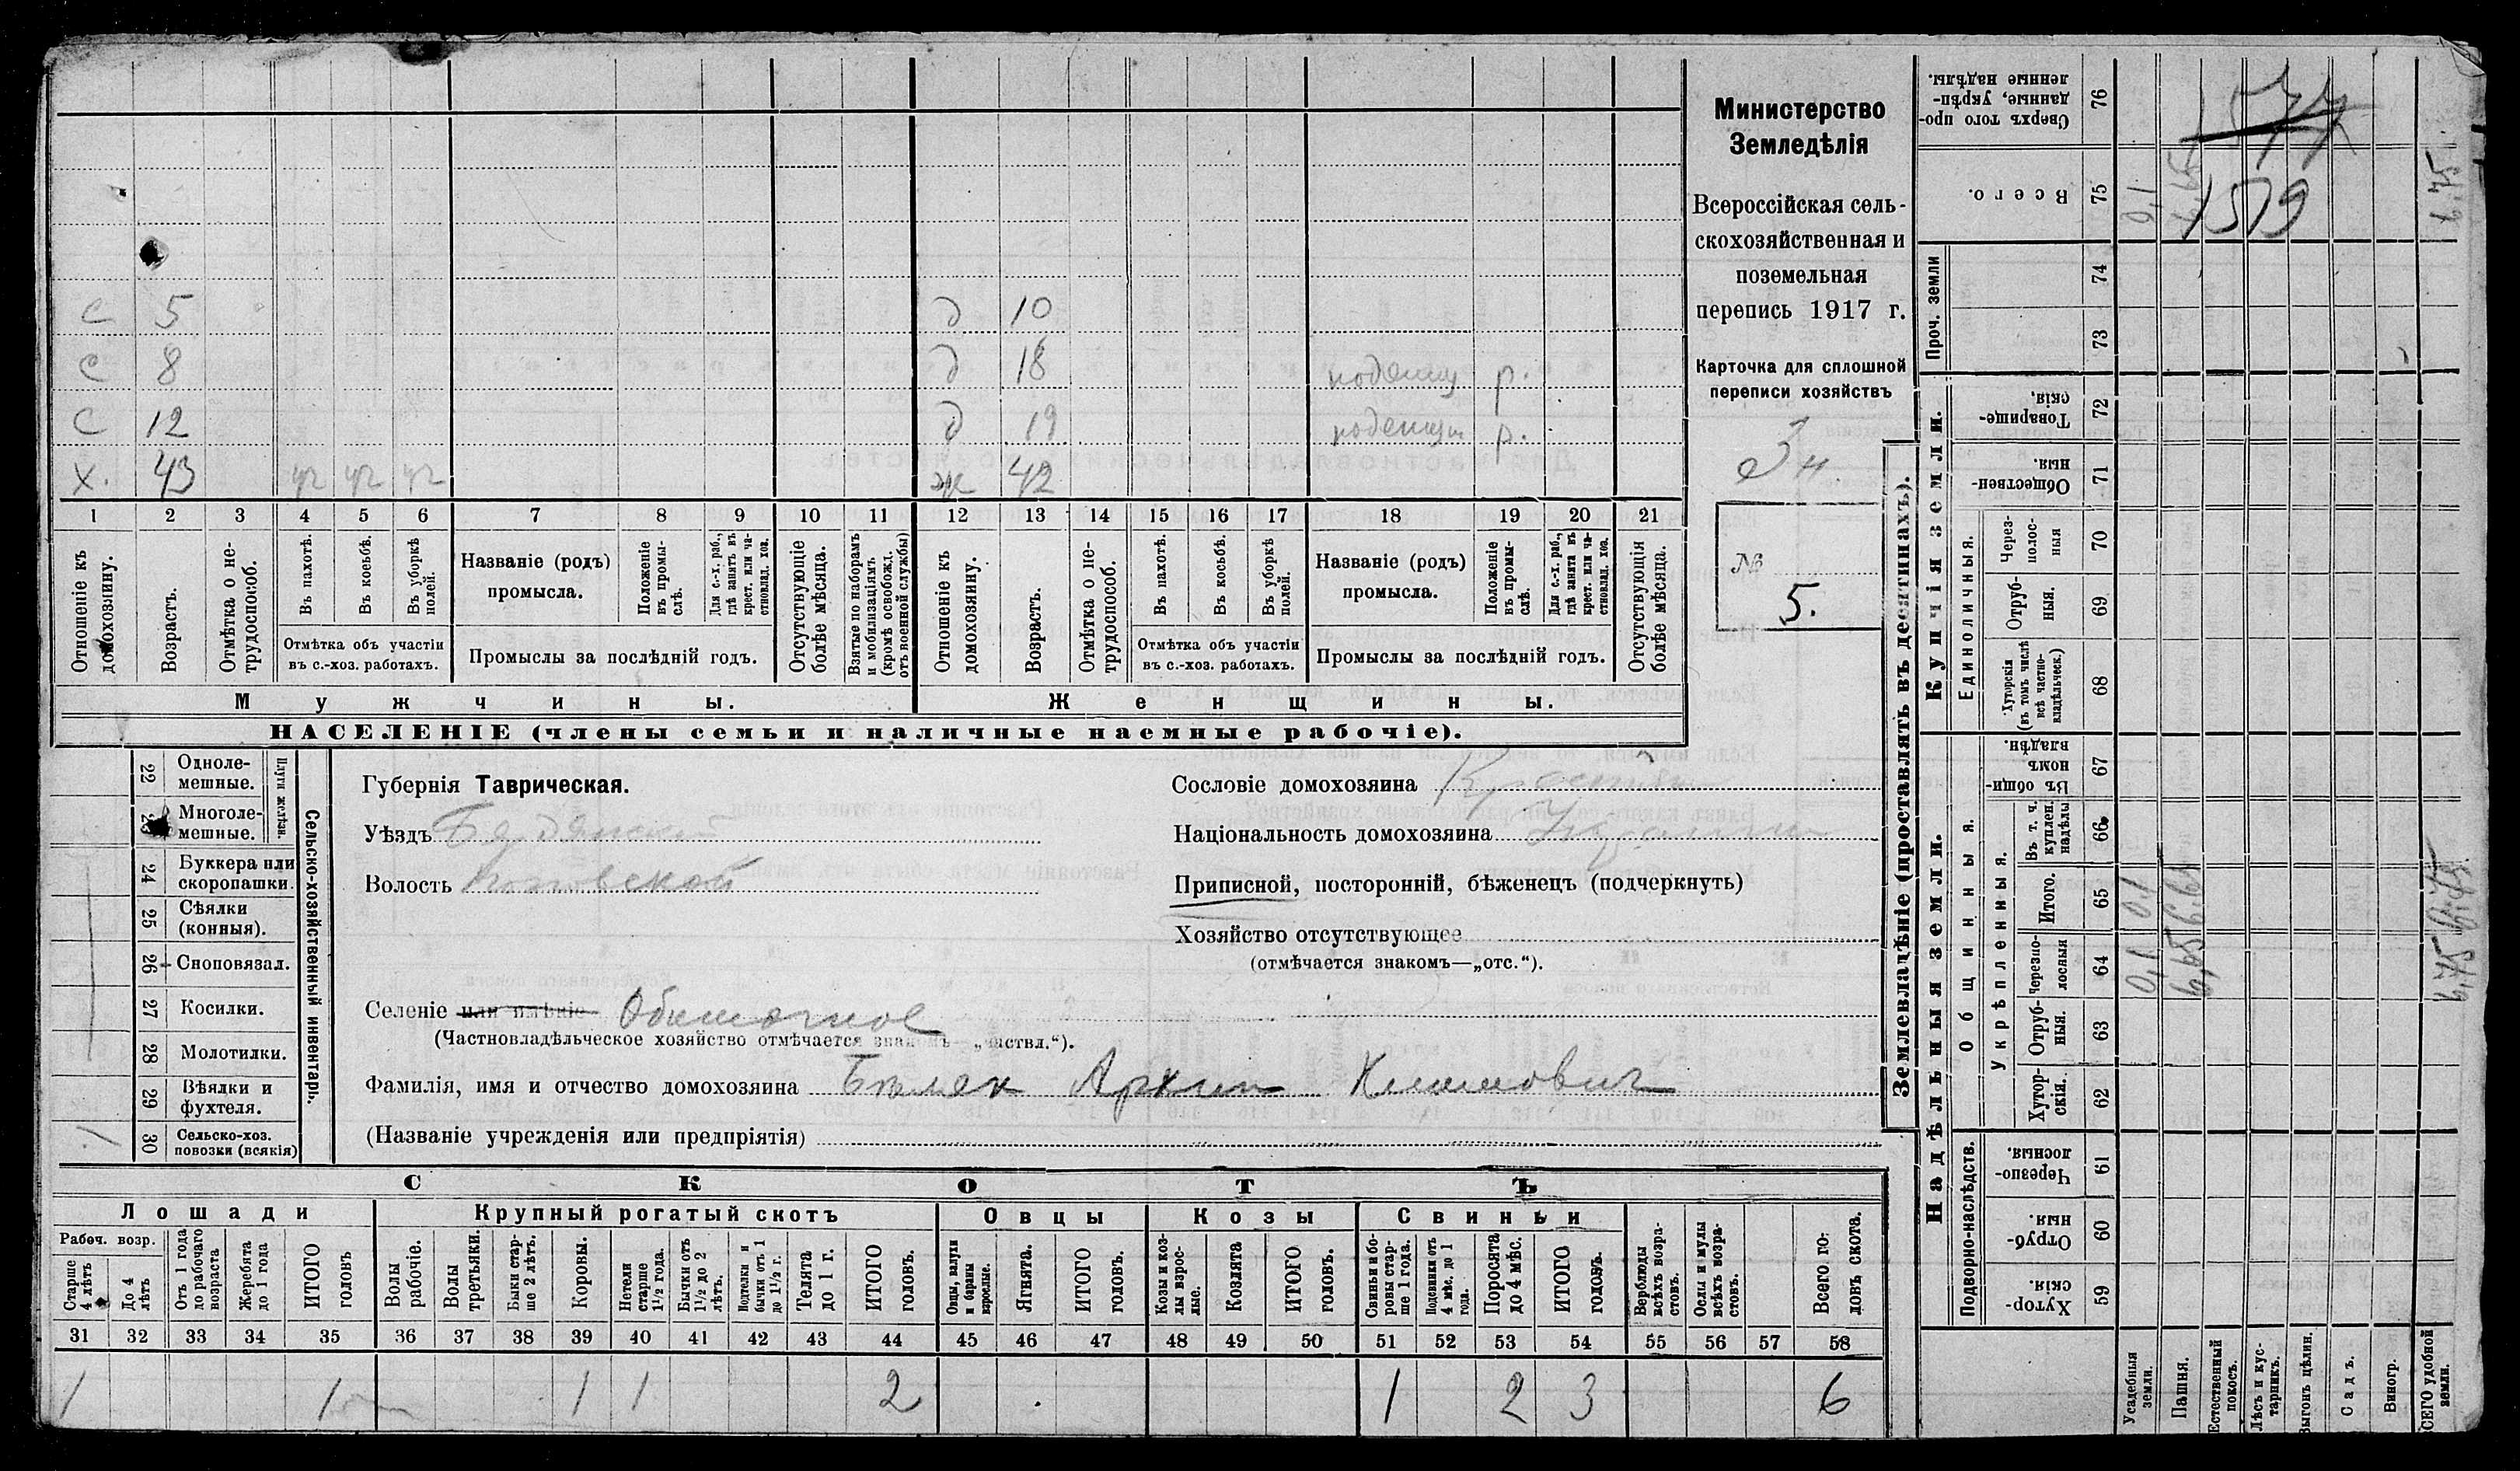 С 5 д 10
С 8 д 18 поденщ р.
С 12 д 19 поденщ р.
Х. 43 уч уч уч ж 42
1 2 3 4 5 6 7 8 9 10 11 12 13 14 15 16 17 18 19 20 21
Отношеніе къ домохозяину.
Возрастъ.
Отмѣтка о не-трудоспособ.
Въ пахотѣ.
Въ косьбѣ.
Въ уборкѣ полей.
Отмѣтка объ участіи
въ с.-хоз. работахъ.
Названіе (родъ)
промысла.
Положеніе въ промы-слѣ.
Для с.-х. раб., гдѣ занятъ въ крест. или ча-стновлад. хоз.
Промыслы за послѣдній годъ.
Отсутствующіе болѣе мѣсяца.
Взятые по наборамъ и мобилизаціямъ (кромѣ освобожд. отъ военной службы)
Отношеніе къ домохозяину.
Возрастъ.
Отмѣтка о не-трудоспособ.
Въ пахотѣ.
Въ косьбѣ.
Въ уборкѣ полей.
Отмѣтка объ участіи
въ с.-хоз. работахъ.
Названіе (родъ)
промысла.
Положеніе въ промы-слѣ.
Для с.-х. раб., гдѣ занята въ крест. или ча-стновлад. хоз.
Промыслы за послѣдній годъ.
Отсутствующія болѣе мѣсяца.
Мужчины. Женщины.
НАСЕЛЕНІЕ (члены семьи и наличные наемные рабочіе).
Министерство
Земледѣлія
Всероссійская сель-
скохозяйственная и
поземельная
перепись 1917 г.
Карточка для сплошной
переписи хозяйствъ
№
5.
Сельско-хозяйственный инвентарь.
Плуги желѣзн.
22 Одноле-мешные.
23 Многоле-мешные.
24 Буккера или скоропашки.
25 Сѣялки (конныя).
26 Сноповязал.
27 Косилки.
28 Молотилки.
29 Вѣялки и фухтеля.
30 Сельско-хоз. повозки (всякія) 1
Губернія Таврическая.
Уѣздъ Бердянский
Волость
Сословіе домохозяина
Національность домохозяина
Приписной, посторонній, бѣженецъ (подчеркнуть)
Хозяйство отсутствующее
(отмѣчается знакомъ—„отс.“).
Селеніе или имѣніе Обиточное
(Частновладѣльческое хозяйство отмѣчается знакомъ—„частвл.“).
Фамилія, имя и отчество домохозяина Бѣляк Архип Климович
(Названіе учрежденія или предпріятія)
СКОТЪ
Лошади Крупный рогатый скотъ Овцы Козы Свиньи
Рабоч. возр.
Старше 4 лѣтъ
До 4 лѣтъ
Отъ 1 года до рабочаго возраста
Жеребята до 1 года
ИТОГО головъ
Волы рабочіе.
Волы третьяки.
Быки стар-ше 2 лѣтъ.
Коровы.
Нетели старше 1½ года.
Бычки отъ 1½ до 2 лѣтъ.
Подтелки и бычки отъ 1 до 1½ г.
Телята до 1 г.
ИТОГО головъ.
Овцы, валухи и бараны взрослые.
Ягнята.
ИТОГО головъ.
Козы и коз-лы взрос-лые.
Козлята
ИТОГО головъ.
Свиньи и бо-ровы стар-ше 1 года.
Подсвинки отъ 4 мѣс. до 1 года.
Поросята до 4 мѣс.
ИТОГО головъ.
Верблюды всѣхъ возра-стовъ.
Ослы и мулы всѣхъ возра-стовъ.
Всего го-ловъ скота.
31 32 33 34 35 36 37 38 39 40 41 42 43 44 45 46 47 48 49 50 51 52 53 54 55 56 57 58
1 1 1 1 2 1 2 3 6
Землевладѣніе (проставлять въ десятинахъ).
Надѣльныя земли. Купчія земли.
Подворно-наслѣдств.
Общинныя.
Укрѣпленныя.
Единоличныя.
Проч. земли
Сверхъ того про-данные, укрѣп-ленные надѣлы. 76
Всего. 75 0,1 6,65 6,75
74
73
Товарище-скія. 72
Обществен-ныя. 71
Через-полос-ныя 70
Отруб-ныя. 69
Хуторскія (въ томъ числѣ всѣ частно-владѣльческ.) 68
Въ общи-номъ владѣн. 67
Въ т. ч. куплен. надѣлы 66
Итого. 65 0,1 6,65 6,75
Черезпо-лосныя 64 0,1 6,65 6,75
Отруб-ныя. 63
Хутор-скія. 62
Черезпо-лосныя. 61
Отруб-ныя. 60
Хутор-скія. 59
Усадебныя земли.
Пашня.
Естественный покосъ.
Лѣсъ и кус-тарникъ.
Выгонъ цѣлин.
Садъ.
Виногр.
ВСЕГО удобной земли.
1577
1579